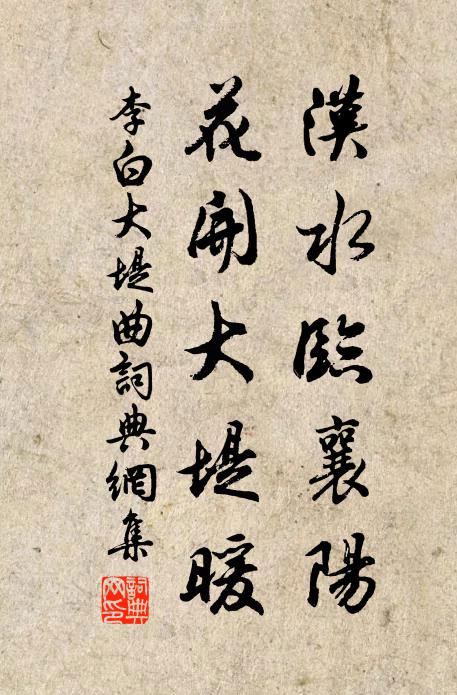 漢水臨襄陽
花開大堤暖
李白大堤曲詞典網集
詞典網印